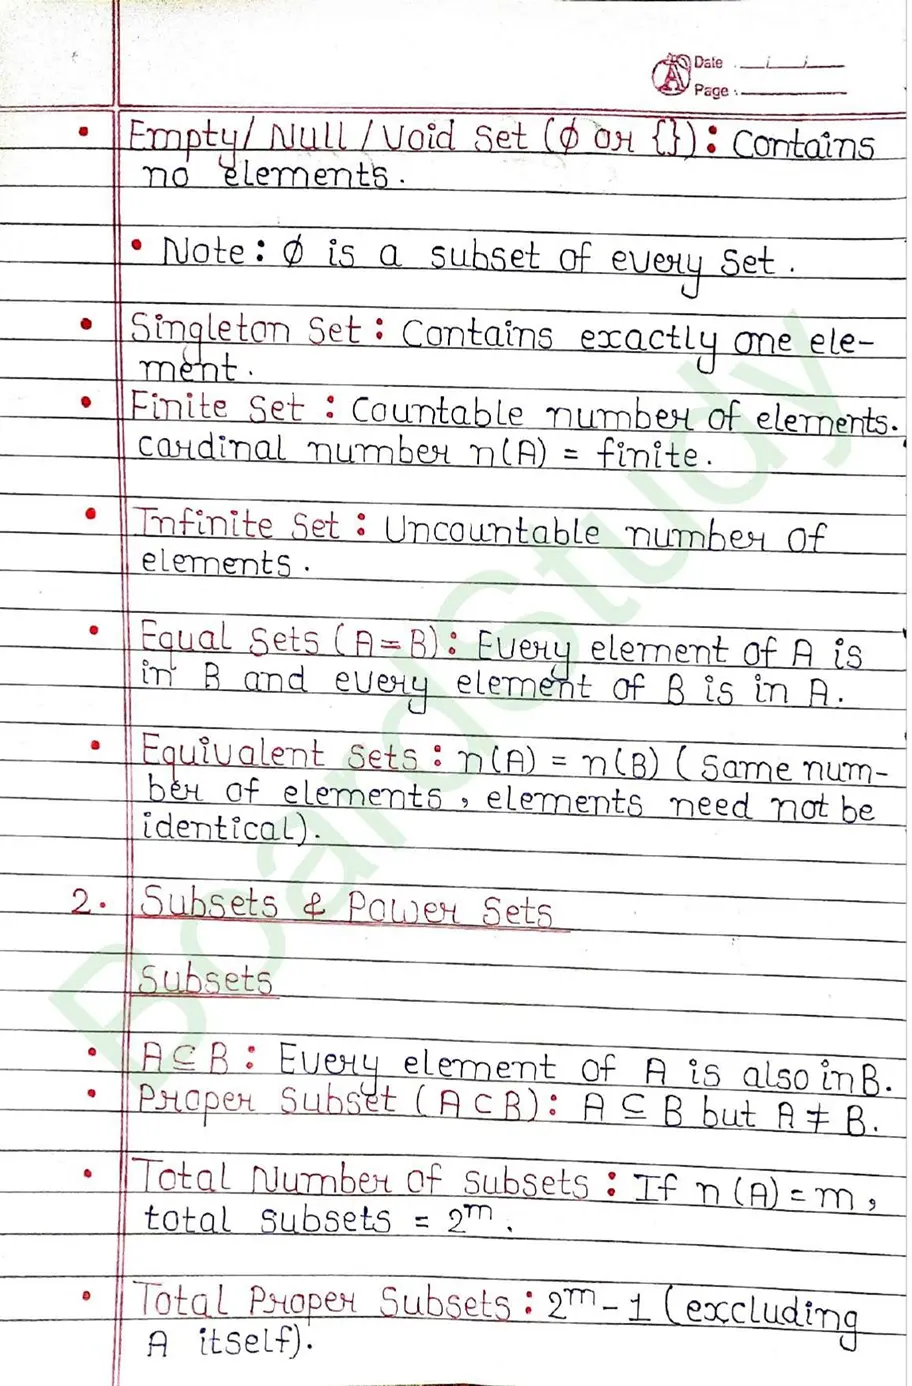 Date
Page :
• Empty/ Null / Void Set (∅ or {}) : Contains
no elements.
• Note : ∅ is a subset of every set.
• Singleton Set : Contains exactly one ele-
ment.
• Finite Set : Countable number of elements.
cardinal number n(A) = finite.
• Infinite Set : Uncountable number of
elements.
• Equal Sets (A = B) : Every element of A is
in B and every element of B is in A.
• Equivalent Sets : n(A) = n(B) (same num-
ber of elements, elements need not be
identical).
2. Subsets & Power Sets
Subsets
• A ⊆ B : Every element of A is also in B.
• Proper Subset (A ⊂ B) : A ⊆ B but A ≠ B.
• Total Number of subsets : If n(A) = m,
total subsets = 2^m.
• Total Proper Subsets : 2^m - 1 (excluding
A itself).
BoardStudy